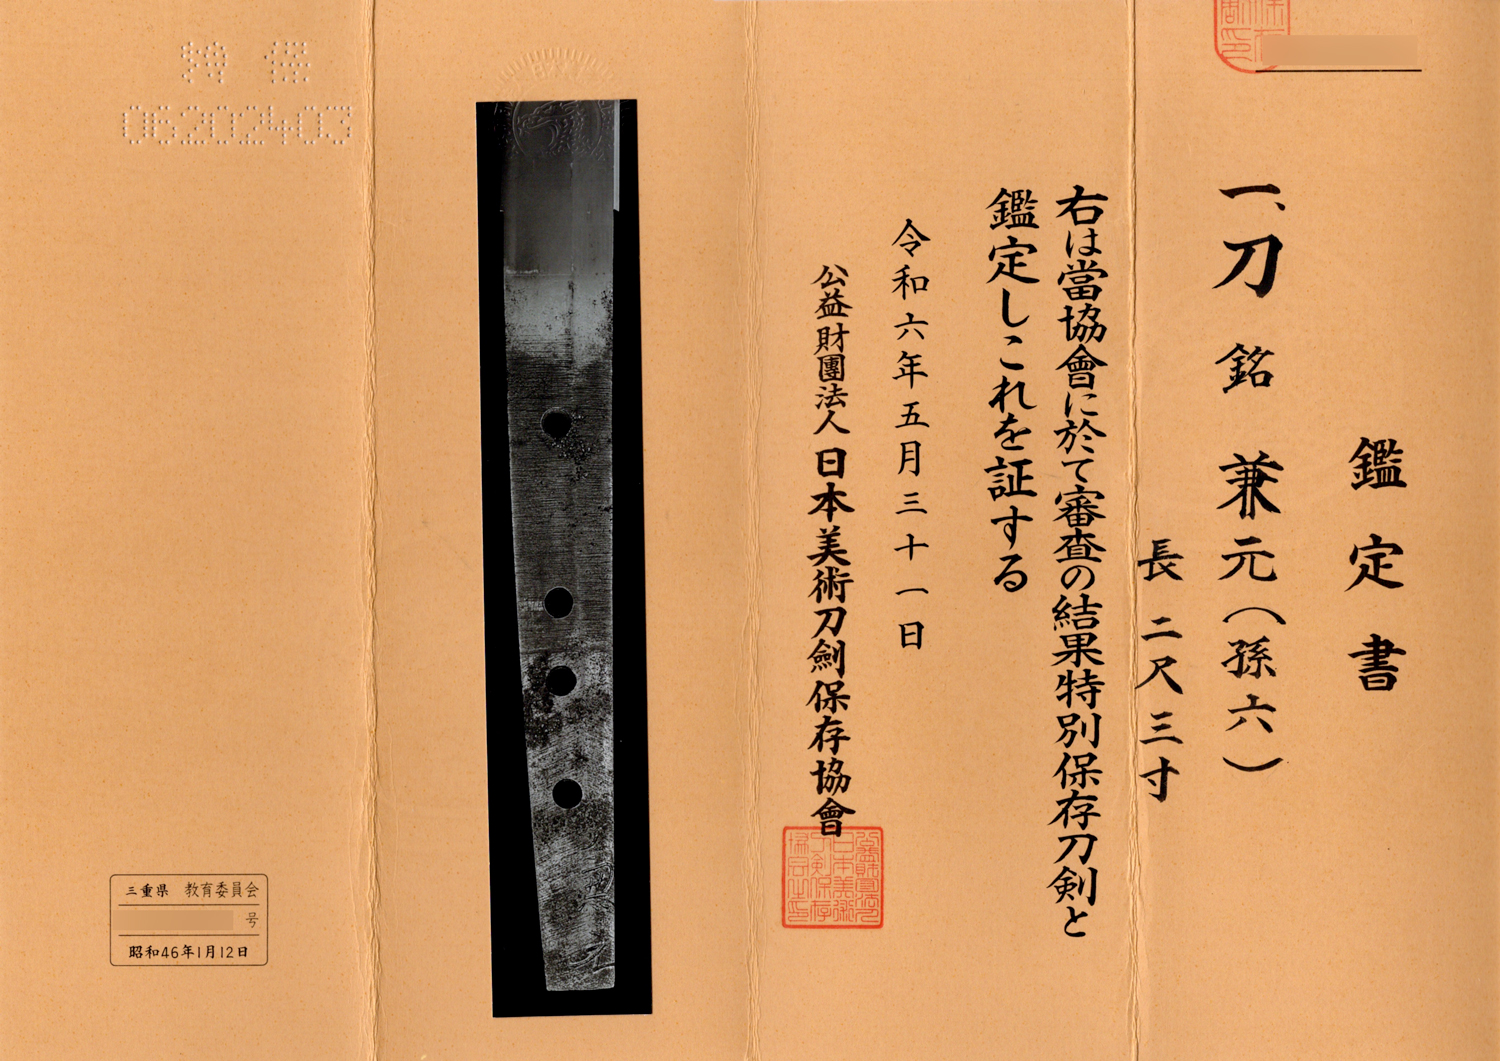 鑑定書
一、刀 銘 兼元(孫六)
長 二尺三寸
右は當協會に於て審査の結果特別保存刀剣と
鑑定しこれを証する
令和六年五月三十一日
公益財團法人 日本美術刀劍保存協會
特 保
06202403
三重県 教育委員会
号
昭和46年1月12日